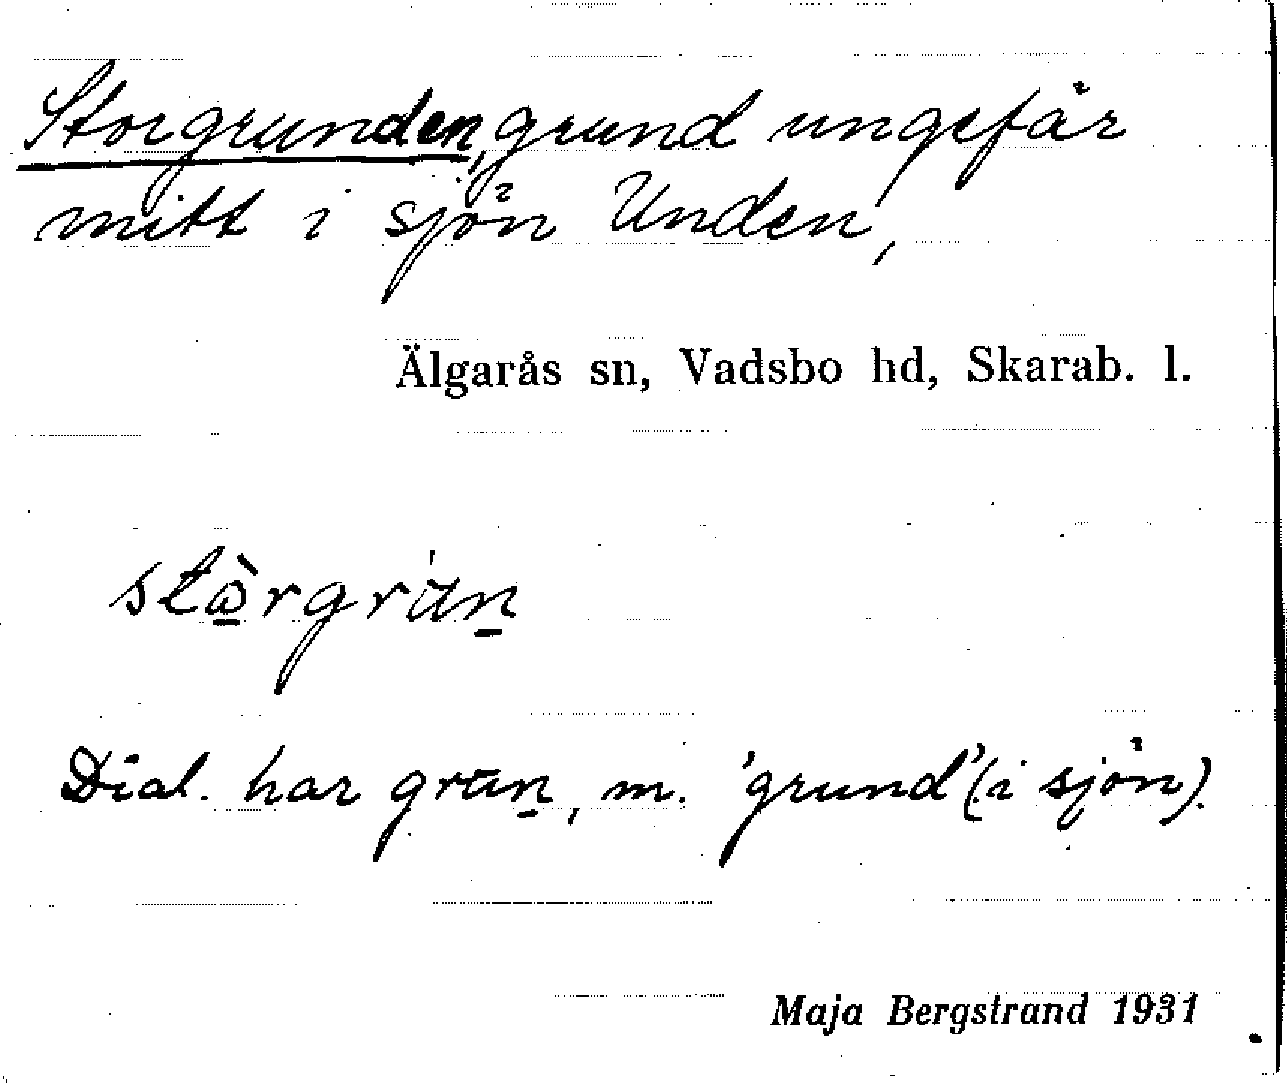 Storgrunden, grund ungefär
mitt i sjön Unden,
Älgarås sn, Vadsbo hd, Skarab. l.
Dial. har grun, m. 'grund' (i sjön).
Maja Bergstrand 1931